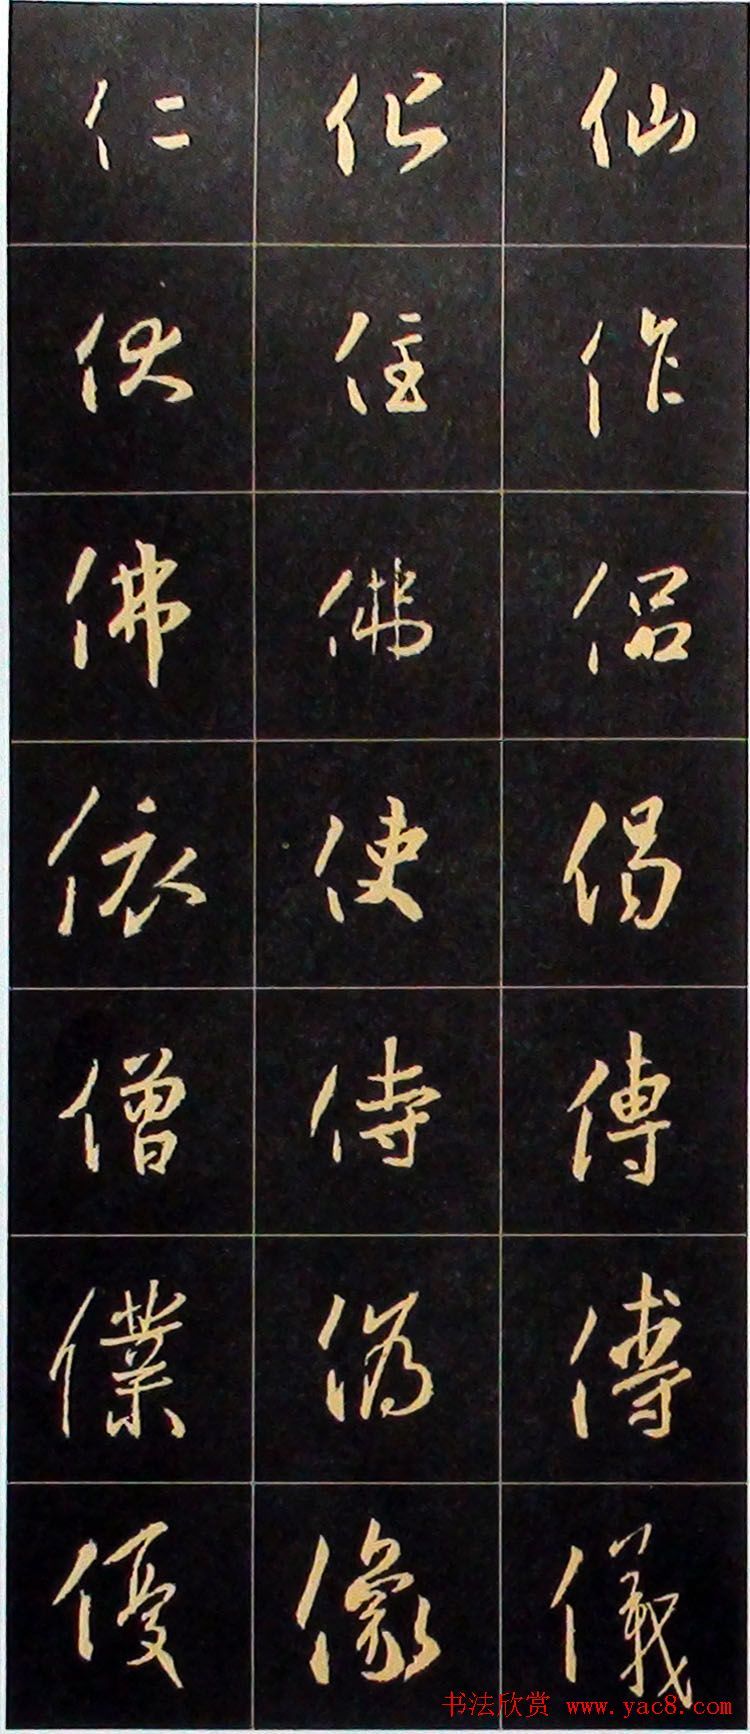 仁 化 仙
伏 住 作
佛 佛 侶
依 使 偈
僧 侍 傳
僕 偽 傅
優 像 儀
书法欣赏 www.yac8.com